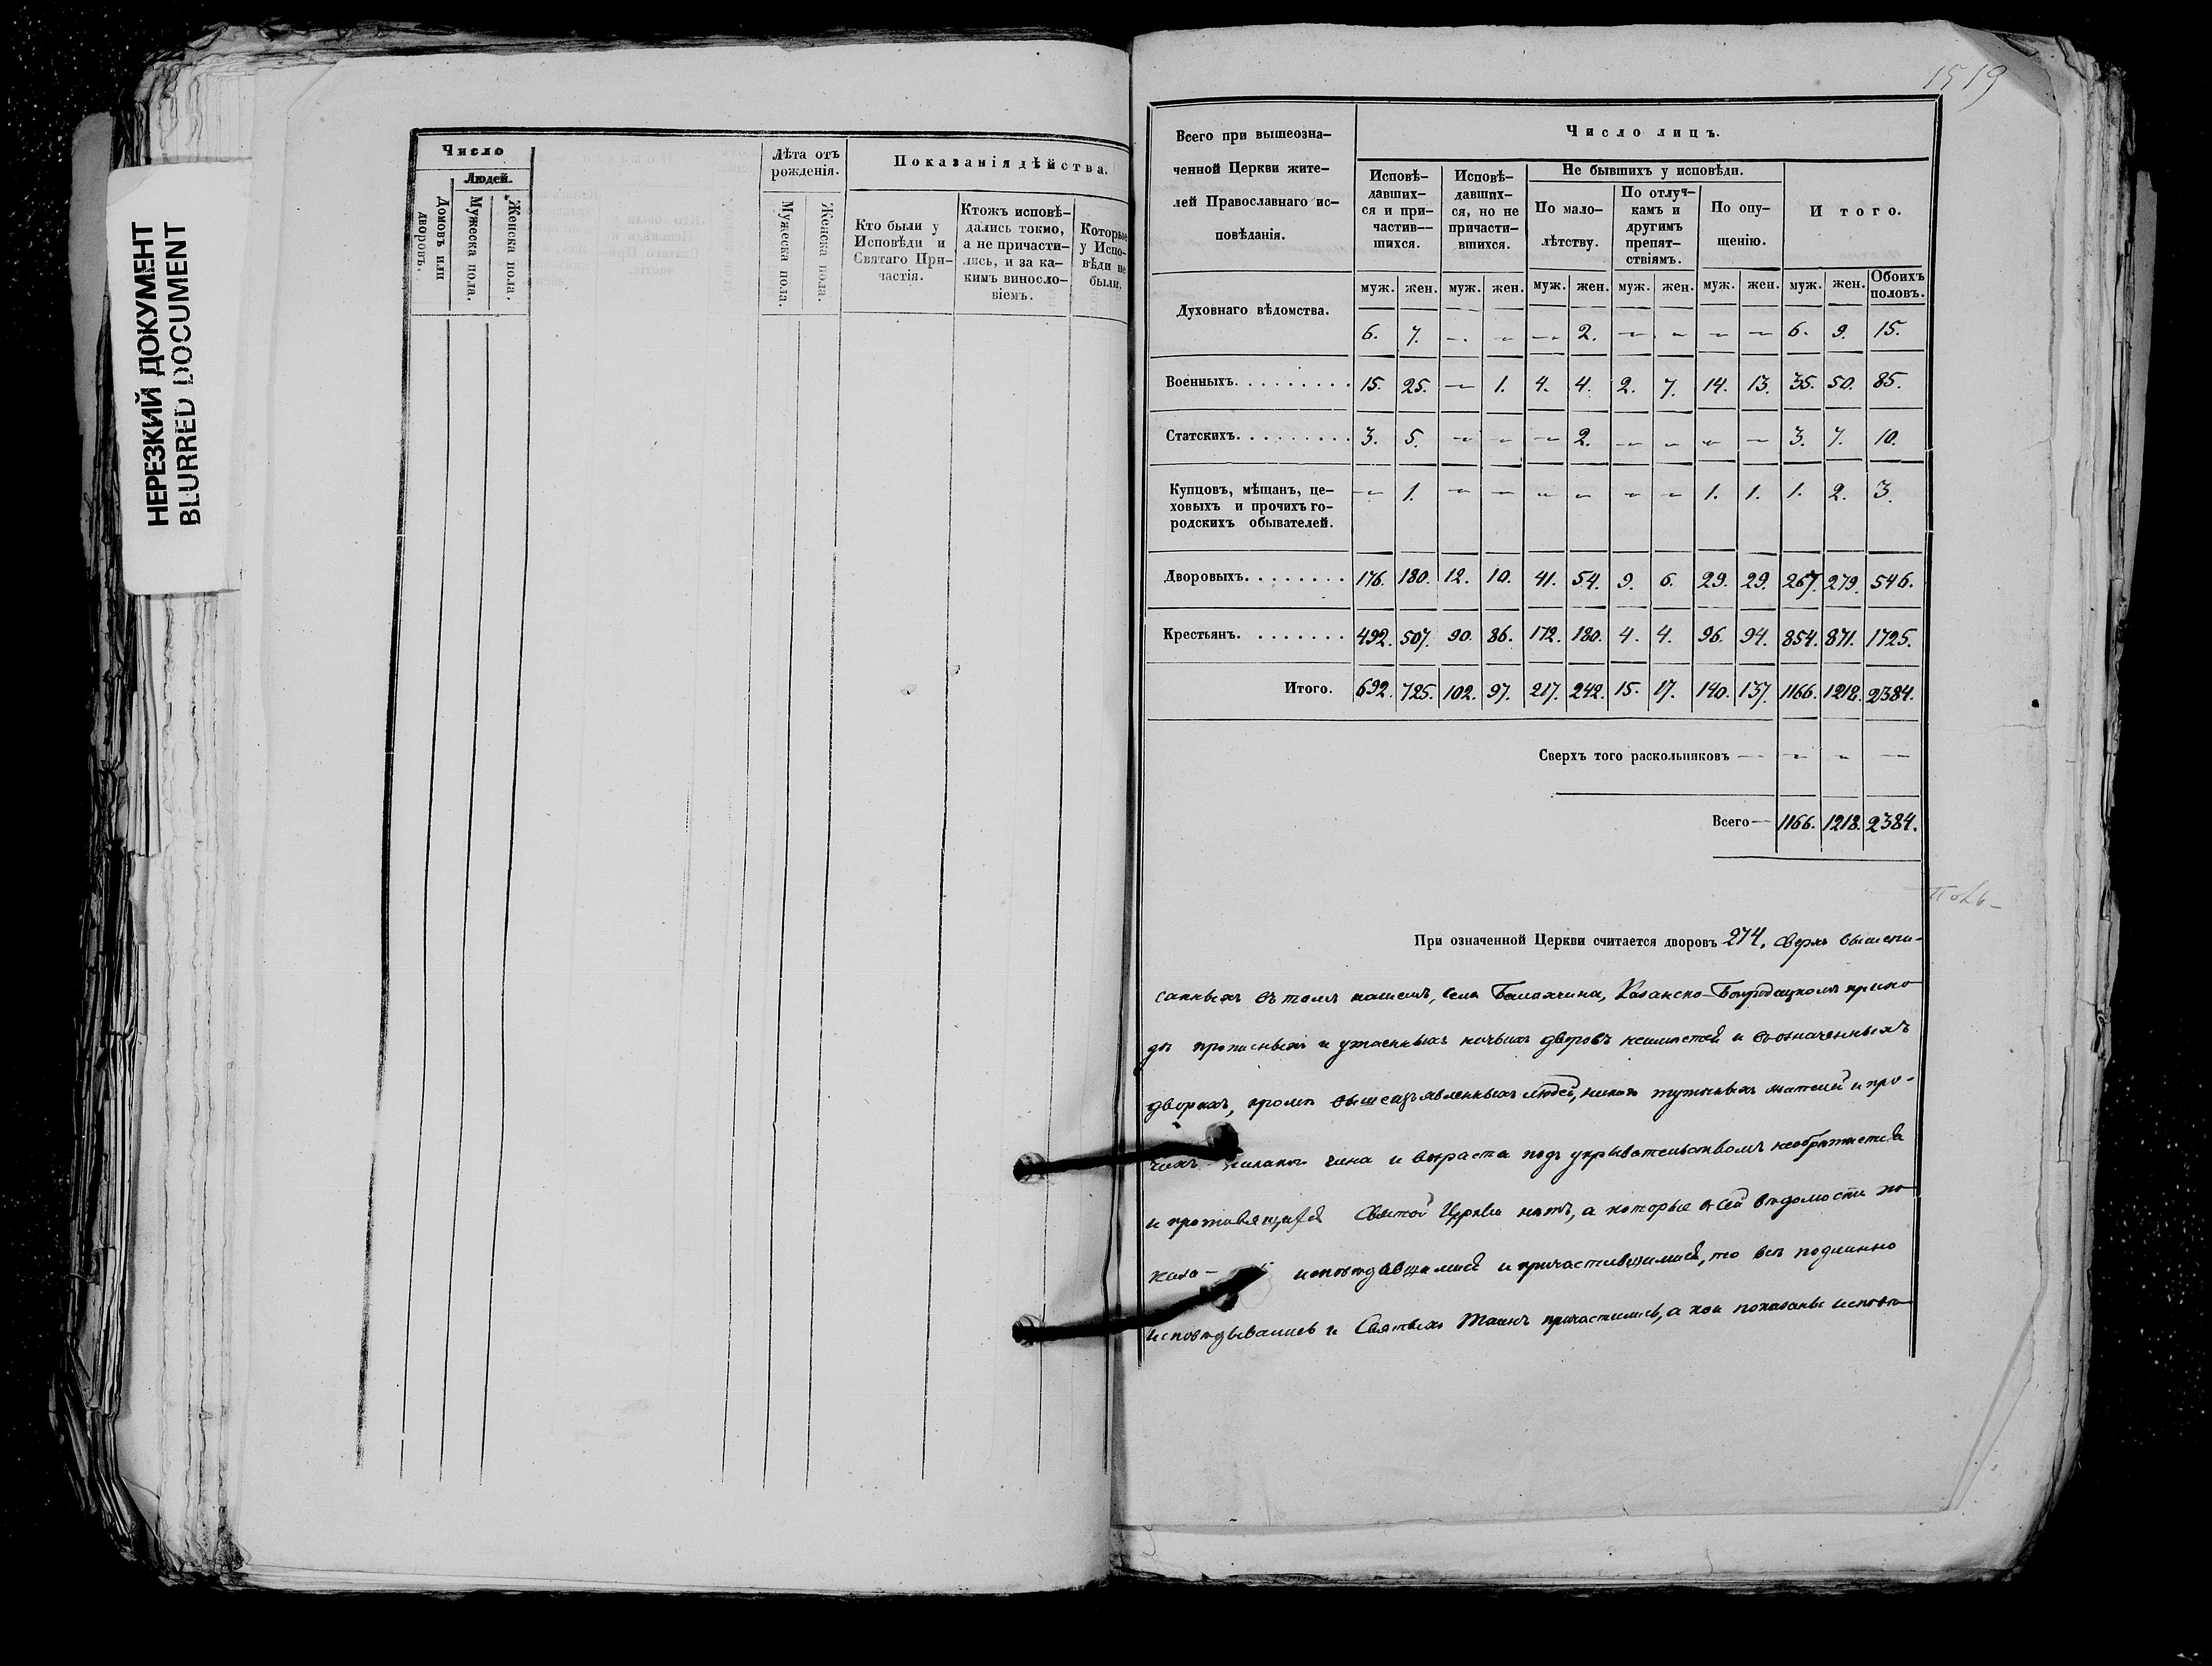 НЕРЕЗКИЙ ДОКУМЕНТ
BLURRED DOCUMENT
Число
Людей.
Домовъ или дворовъ.
Мужеска пола.
Женска пола.
Лѣта отъ
рожденія.
Мужеска пола.
Женска пола.
Показанія дѣйства.
Кто были у
Исповѣди и
Святаго При-
частія.
Ктожъ исповѣ-
дались токмо,
а не причасти-
лись, и за ка-
кимъ винosло-
віемъ.
Которые
у Испо-
вѣди не
были.
1519
Всего при вышеозна-
ченной Церкви жите-
лей Православнаго ис-
повѣданія.
Число лицъ.
Исповѣ-
давших-
ся и при-
частив-
шихся.
Исповѣ-
давших-
ся, но не
причасти-
вшихся.
Не бывшихъ у исповѣди.
По мало-
лѣтству.
По отлуч-
камъ и
другимъ
препят-
ствіямъ.
По опу-
щенію.
Итого.
муж. жен. муж. жен. муж. жен. муж. жен. муж. жен. муж. жен. Обоихъ половъ.
Духовнаго вѣдомства. 6. 7. — — — 2. — — — — 6. 9. 15.
Военныхъ. 15. 25. — 1. 4. 4. 2. 7. 14. 13. 35. 50. 85.
Статскихъ. 3. 5. — — — 2. — — — — 3. 7. 10.
Купцовъ, мѣщанъ, це-
ховыхъ и прочихъ го-
родскихъ обывателей. — 1. — — — — — — 1. 1. 1. 2. 3.
Дворовыхъ. 176. 180. 12. 10. 41. 54. 9. 6. 29. 29. 267. 279. 546.
Крестьянъ. 492. 507. 90. 86. 172. 180. 4. 4. 96. 94. 854. 871. 1725.
Итого. 692. 725. 102. 97. 217. 242. 15. 17. 140. 137. 1166. 1218. 2384.
Сверхъ того раскольниковъ — — — —
Всего — 1166. 1218. 2384.
При означенной Церкви считается дворовъ 274. Сверхъ вышепи-
санныхъ въ томъ нашемъ, села Казанско-Богородицкомъ прихо-
дѣ прописныхъ и утаенныхъ ничьихъ дворовъ неимѣется и въ означенныхъ
дворахъ, кромѣ вышеизъявленныхъ людей, никого тутошнихъ жителей и про-
чина и возраста подъ укрывательствомъ необрѣтается
и противящихся Святой Церкви нѣтъ, а которые въ сей вѣдомости по
каза- исповѣдавшимися и причастившимися, то всѣ подлинно
исповѣдывались и Святыхъ Таинъ причастились, а кои показаны исповѣ-